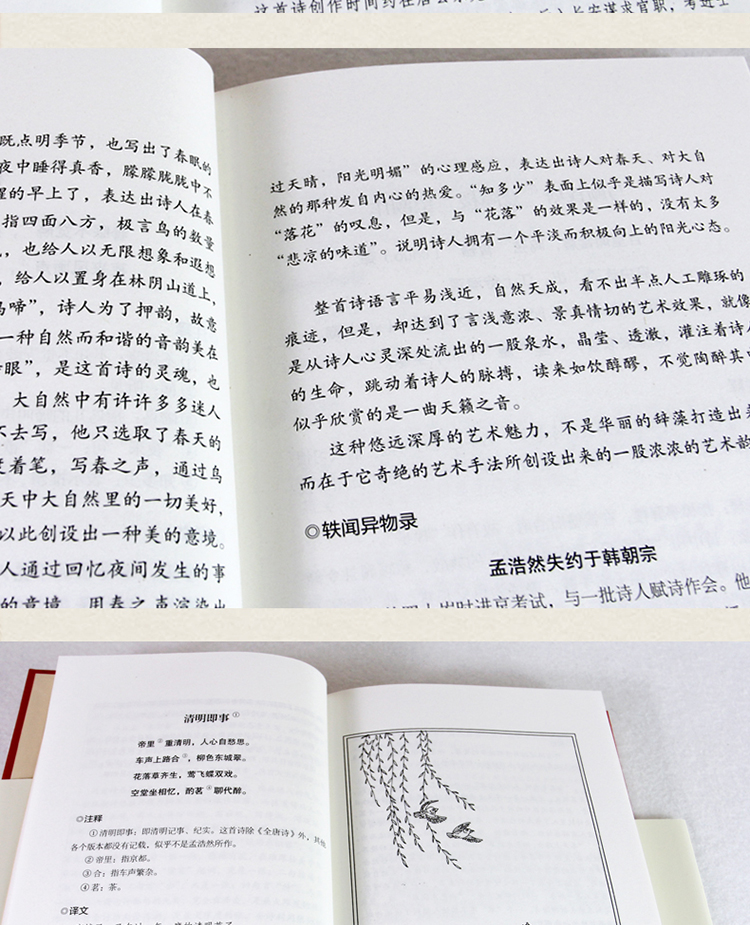 这首诗创作时间约在
长安谋求官职，考进士
既点明季节，也写出了春眠的
夜中睡得真香，朦朦胧胧中不
醒的早上了，表达出诗人在春
指四面八方，极言鸟的数量
，也给人以无限想象和遐想
，给人以置身在林阴山道上，
鸟啼”，诗人为了押韵，故意
一种自然而和谐的音韵美在
眼”，是这首诗的灵魂，也
大自然中有许许多多迷人
不去写，他只选取了春天的
着笔，写春之声，通过鸟
天中大自然里的一切美好，
以此创设出一种美的意境。
人通过回忆夜间发生的事
的意境，用春之声渲染出
过天晴，阳光明媚”的心理感应，表达出诗人对春天、对大自
然的那种发自内心的热爱。“知多少”表面上似乎是描写诗人对
“落花”的叹息，但是，与“花落”的效果是一样的，没有太多
“悲凉的味道”。说明诗人拥有一个平淡而积极向上的阳光心态。
整首诗语言平易浅近，自然天成，看不出半点人工雕琢的
痕迹，但是，却达到了言浅意浓、景真情切的艺术效果，就像
是从诗人心灵深处流出的一股泉水，晶莹、透澈，灌注着诗人
的生命，跳动着诗人的脉搏，读来如饮醇醪，不觉陶醉其中
似乎欣赏的是一曲天籁之音。
这种悠远深厚的艺术魅力，不是华丽的辞藻打造出来
而在于它奇绝的艺术手法所创设出来的一股浓浓的艺术韵
◎轶闻异物录
孟浩然失约于韩朝宗
岁时进京考试，与一批诗人赋诗作会。他
清明即事①
帝里②重清明，人心自愁思。
车声上路合③，柳色东城翠。
花落草齐生，莺飞蝶双戏。
空堂坐相忆，酌茗④聊代醉。
◎注释
①清明即事：即清明记事、纪实。这首诗除《全唐诗》外，其他
各个版本都没有记载，似乎不是孟浩然所作。
②帝里：指京都。
③合：指车声繁杂。
④茗：茶。
◎译文